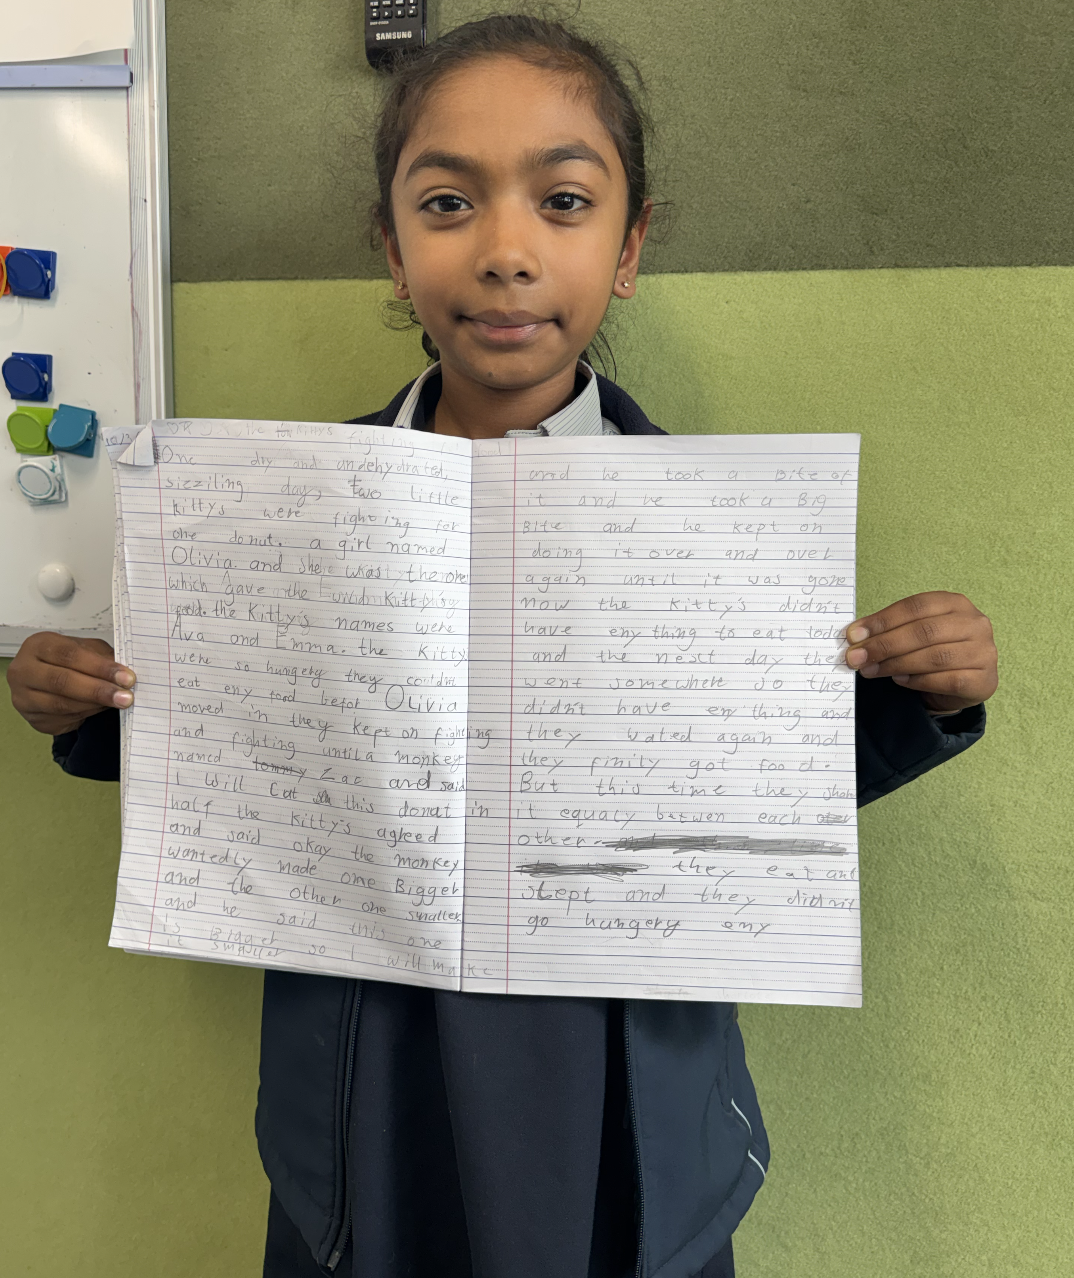 SAMSUNG
10/3
the kittys fighting
One dry and undehydrated,
sizziling day, two little
kittys were fighting for
one donut. a girl named
Olivia. and she was the one
which gave the Kitty's
food. the Kitty's names were
Ava and Emma. the Kitty
were so hungery they couldn't
eat eny food befor Olivia
moved in they kept on fighting
and fighting until a monkey
named tommy Zac and said
I will Cut this donat in
half the Kitty's agreed
and said okay the monkey
wantedly made one Bigger
and the other one smaller
and he said this one
is Bigger so I will make
it smaller
and he took a Bite of
it and he took a Big
Bite and he kept on
doing it over and over
again until it was gone
now the Kitty's didn't
have eny thing to eat today
and the next day they
went somewhere so they
didn't have eny thing and
they wated again and
they finily got food.
But this time they shar
it equaly betwen each oter
other.
they eat and
slept and they didn't
go hungery eny